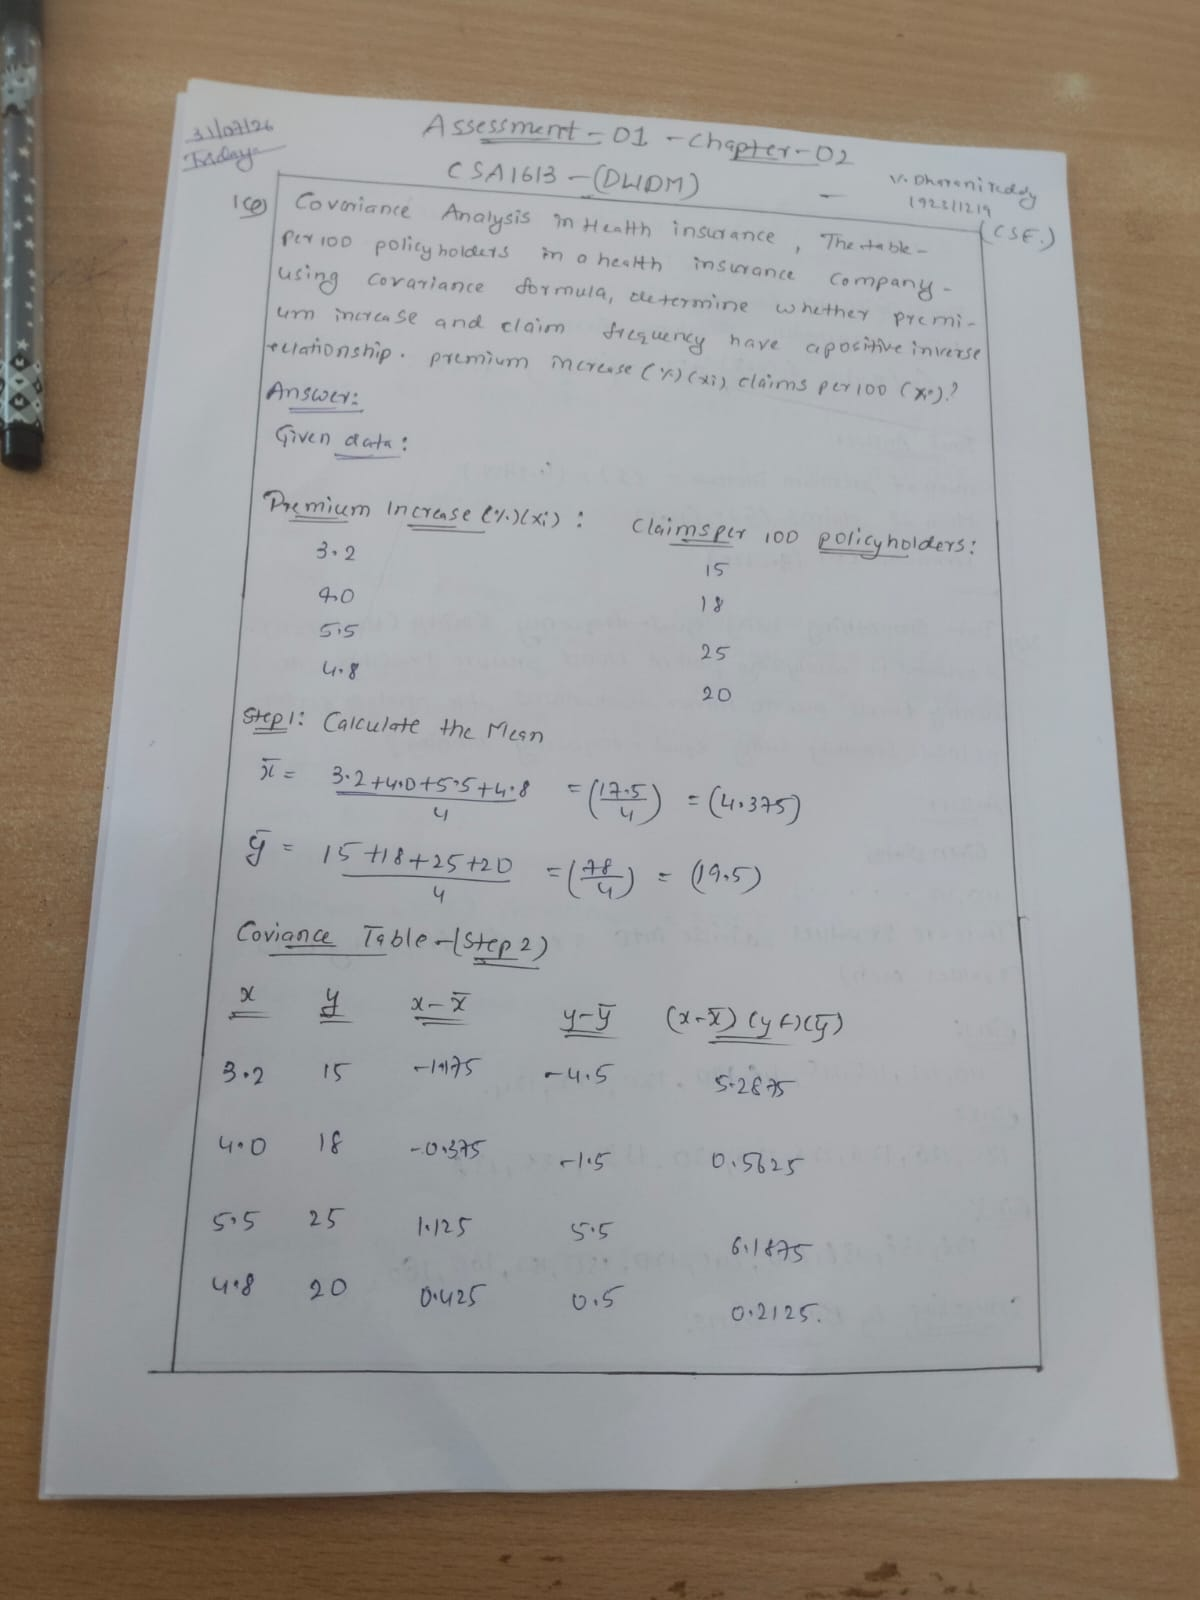 31/07/26
Friday
Assessment - 01 - Chapter - 02
CSA1613 - (DWDM)
V. Dharani reddy
192311219
(CSE.)
1(a) Covariance Analysis in Health insurance, The table -
per 100 policyholders in a health insurance company -
using covariance formula, determine whether premi-
um increase and claim frequency have a positive inverse
relationship. premium increase (%) (xi) claims per 100 (xi).?
Answer:
Given data:
Premium Increase (%) (xi) : Claims per 100 policyholders:
3.2 15
4.0 18
5.5 25
4.8 20
Step 1: Calculate the Mean
x̄ = 3.2+4.0+5.5+4.8 / 4 = (17.5/4) = (4.375)
ȳ = 15+18+25+20 / 4 = (78/4) = (19.5)
Coviance Table - (Step 2)
x y x-x̄ y-ȳ (x-x̄) (y-)(ȳ)
3.2 15 -1.175 -4.5 5.2875
4.0 18 -0.375 -1.5 0.5625
5.5 25 1.125 5.5 6.1875
4.8 20 0.425 0.5 0.2125.